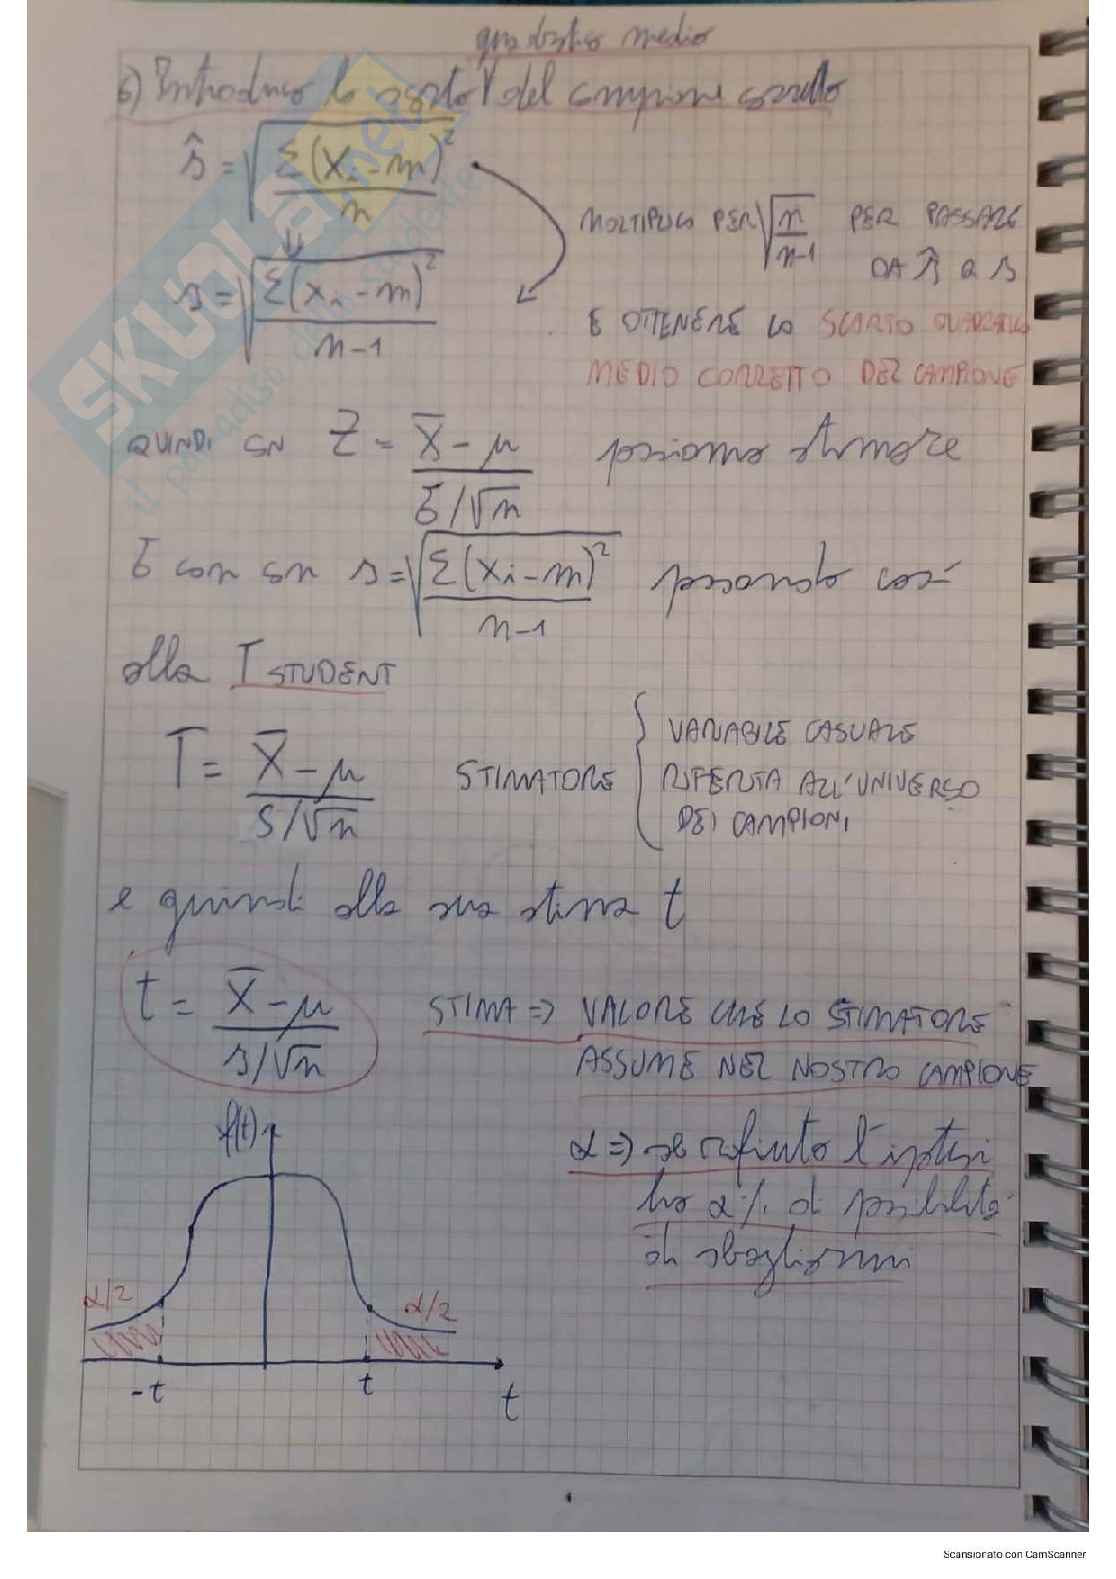 quadratico medio
6) Introduco lo scarto del campione corretto
ŝ = √(Σ(xᵢ-m)²/n)
MOLTIPLICO PER √(n/n-1) PER PASSARE
DA ŝ a s
s = √(Σ(xᵢ-m)²/n-1)
E OTTENERE LO SCARTO QUADRATICO
MEDIO CORRETTO DEL CAMPIONE
QUINDI SN Z = X̄-μ / σ/√n possiamo stimare
σ con sn s = √(Σ(xᵢ-m)²/n-1) passando così
alla T STUDENT
T = X̄-μ / S/√n STIMATORE { VARIABILE CASUALE
RIFERITA ALL'UNIVERSO
DEI CAMPIONI
e quindi alla sua stima t
t = X̄-μ / s/√n STIMA => VALORE CHE LO STIMATORE
ASSUME NEL NOSTRO CAMPIONE
f(t)
α => se rifiuto l'ipotesi
ho α% di possibilità
di sbagliarmi
α/2 α/2
-t t t
SKUOLA.net
il paradiso dello studente
Scansionato con CamScanner